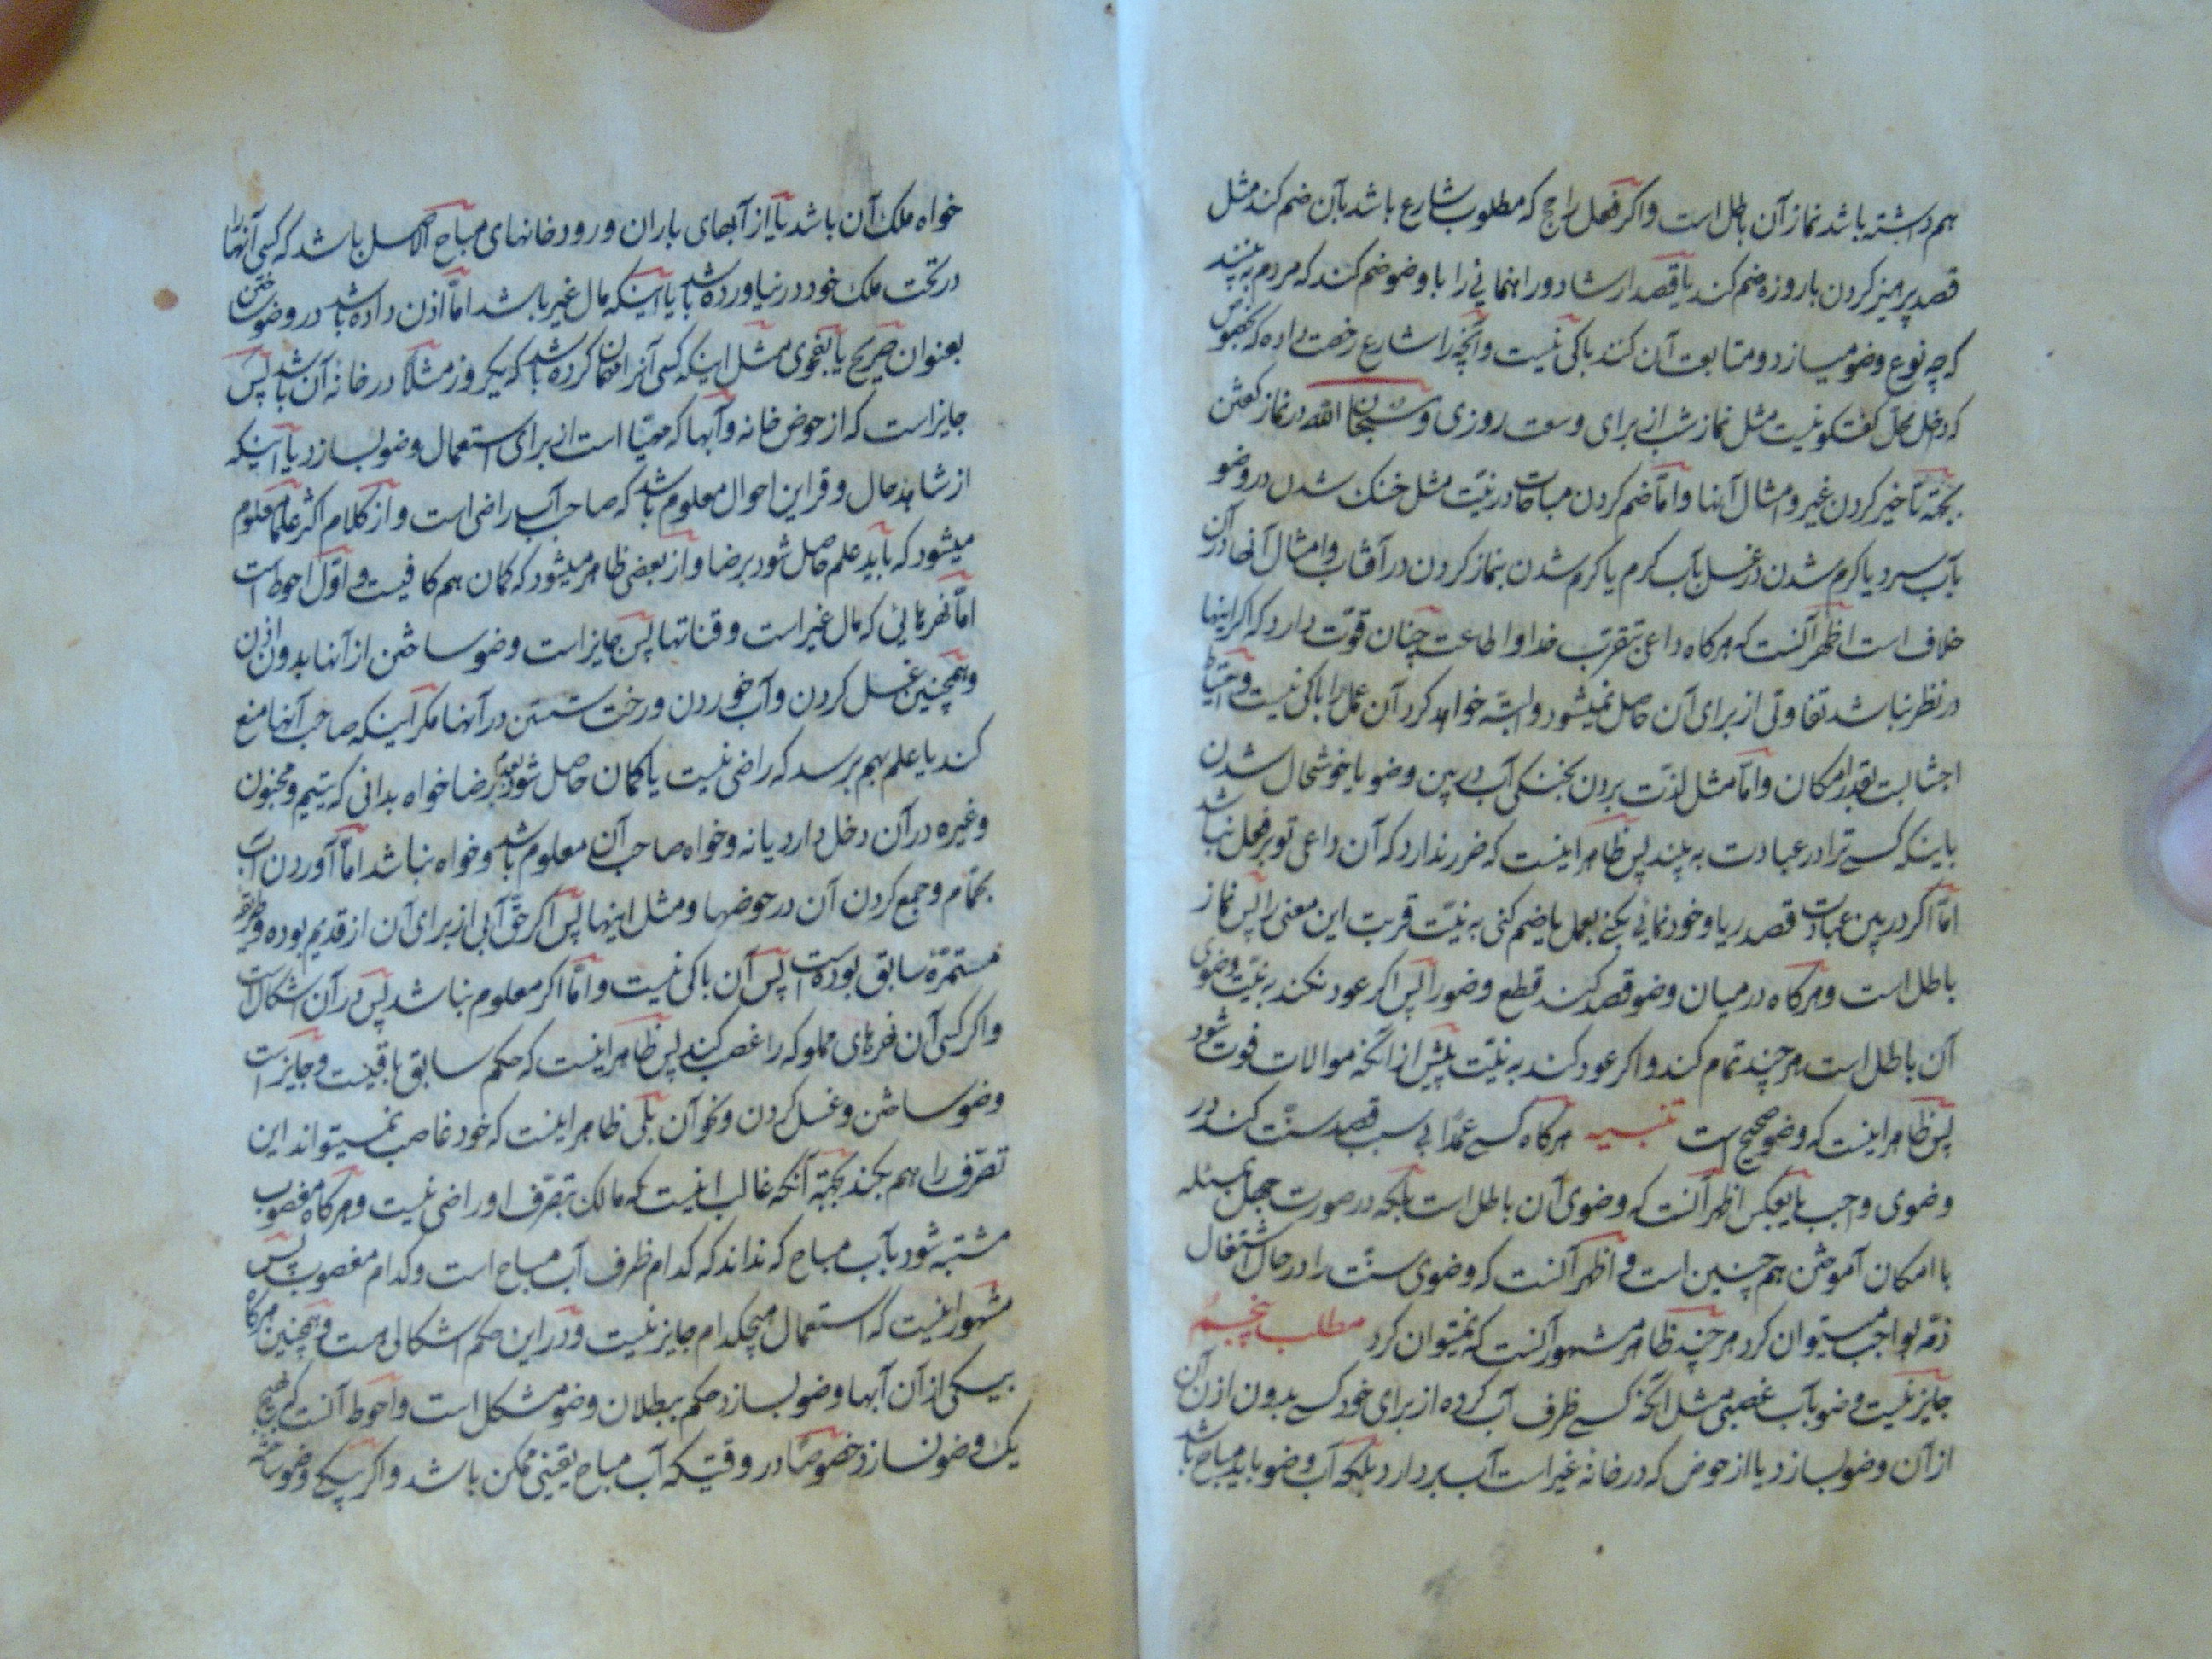 هم داشته باشد نماز آن باطل است و اگر فعل راجح که مطلوب شارع باشد بآن ضم کند مثل
قصد پرهیز کردن با روزه ضم کند یا قصد ارشاد و راهنمائی را با وضو ضم کند که مردم به بینند
که چه نوع وضو میسازد و متابعت آن کنند باکی نیست و آنچه را شارع رخصت داده که بخصوص
که داخل محل گفتگو نیست مثل نماز شب از برای وسعت روزی و سبحان الله در نماز گفتن
بجهة تأخیر کردن غیر و امثال آنها و امّا ضم کردن مباحات در نیّت مثل خنک شدن در وضو
بآب سرد یا گرم شدن در غسل بآب گرم یا گرم شدن بنماز کردن در آفتاب و امثال آنها در آن
خلاف است اظهر آنست که هرگاه داعی بتقرّب خدا و اطاعت چنان قوّت دارد که اگر اینها
در نظر نباشد تفاوتی از برای آن حاصل نمیشود و البتّه خواهد کرد آن عمل را باکی نیست و احتیاط
اجتنابست بقدر امکان و امّا مثل لذّت بردن بخنکی آب در بین وضو یا خوشحال شدن
باینکه کسی ترا در عبادت به بیند پس ظاهر اینست که ضرر ندارد که آن داعی تو بر فعل نباشد
امّا اگر در بین عبادت قصد ریا و خودنمائی بکنی بعمل یا ضم کنی به نیّت قربت این معنی را پس نماز
باطل است و هرگاه در میان وضو قصد کند قطع وضو را پس اگر عود نکند به نیّت وضوی
آن باطل است هر چند تمام کند و اگر عود کند به نیّت پیش از آنکه موالات فوت شود
پس ظاهر اینست که وضو صحیح است تنبیه هرگاه کسی عمداً بی سبب قصد سنّت کند در
وضوی واجب یا بعکس اظهر آنست که وضوی آن باطل است بلکه در صورت جهل بمسئله
با امکان آموختن هم چنین است و اظهر آنست که وضوی سنّت را در حال اشتغال
ذمّه بواجب میتوان کرد هر چند ظاهر مشهور آنست که نمیتوان کرد مطلب پنجم
جایز نیست وضو بآب غصبی مثل آنکه کسی ظرف آب کرده از برای خود کسی بدون اذن آن
از آن وضو بسازد یا از حوض که در خانهٔ غیر است آب بردارد بلکه آب وضو باید مباح باشد
خواه ملک آن باشد یا از آبهای باران و رودخانهای مباح الاصل باشد که کسی آنها را
در تحت ملک خود در نیاورده باشد یا اینکه مال غیر باشد امّا اذن داده باشد در وضو ساختن
بعنوان صریح یا بفحوی مثل اینکه کسی آنرا مهمان کرده باشد که یکروز مثلاً در خانه آن باشد پس
جایز است که از حوض خانه و آبها که مهیّا است از برای استعمال وضو بسازد یا اینکه
از شاهد حال و قراین احوال معلوم باشد که صاحب آب راضی است و از کلام اکثر علما معلوم
میشود که باید علم حاصل شود برضا و از بعضی ظاهر میشود که گمان هم کافیست و اوّل احوط است
امّا نهرهائی که مال غیر است و قناتها پس جایز است وضو ساختن از آنها بدون اذن
و همچنین غسل کردن و آب خوردن و رخت شستن در آنها مگر اینکه صاحب آنها منع
کند یا علم بهم برسد که راضی نیست یا گمان حاصل شود بعدم رضا خواه بدانی که یتیم و مجنون
و غیره در آن دخل دارد یا نه و خواه صاحب آن معلوم باشد و خواه نباشد امّا آوردن آب
بحمّام و جمع کردن آن در حوضها و مثل اینها پس اگر حقّ آبی از برای آن از قدیم بوده و طریقه
مستمرّهٔ سابق بوده است پس آن باکی نیست و امّا اگر معلوم نباشد پس در آن اشکال است
و اگر کسی آن نهرهای مملوکه را غصب کند پس ظاهر اینست که حکم سابق باقیست و جایز است
وضو ساختن و غسل کردن و نحو آن بلی ظاهر اینست که خود غاصب نمیتواند این
تصرّف را هم بکند بجهة آنکه غالب اینست که مالک بتصرّف او راضی نیست و هرگاه مغصوب
مشتبه شود بآب مباح که نداند که کدام ظرف آب مباح است و کدام مغصوب پس
مشهور اینست که استعمال هیچکدام جایز نیست و در این حکم اشکالی هست و همچنین هرگاه
بیکی از آن آبها وضو بسازد حکم ببطلان وضو مشکل است و احوط آنست که بهیچ
یک وضو نسازد خصوصاً در وقتیکه آب مباح یقینی ممکن باشد و اگر بیکی وضو ساخته